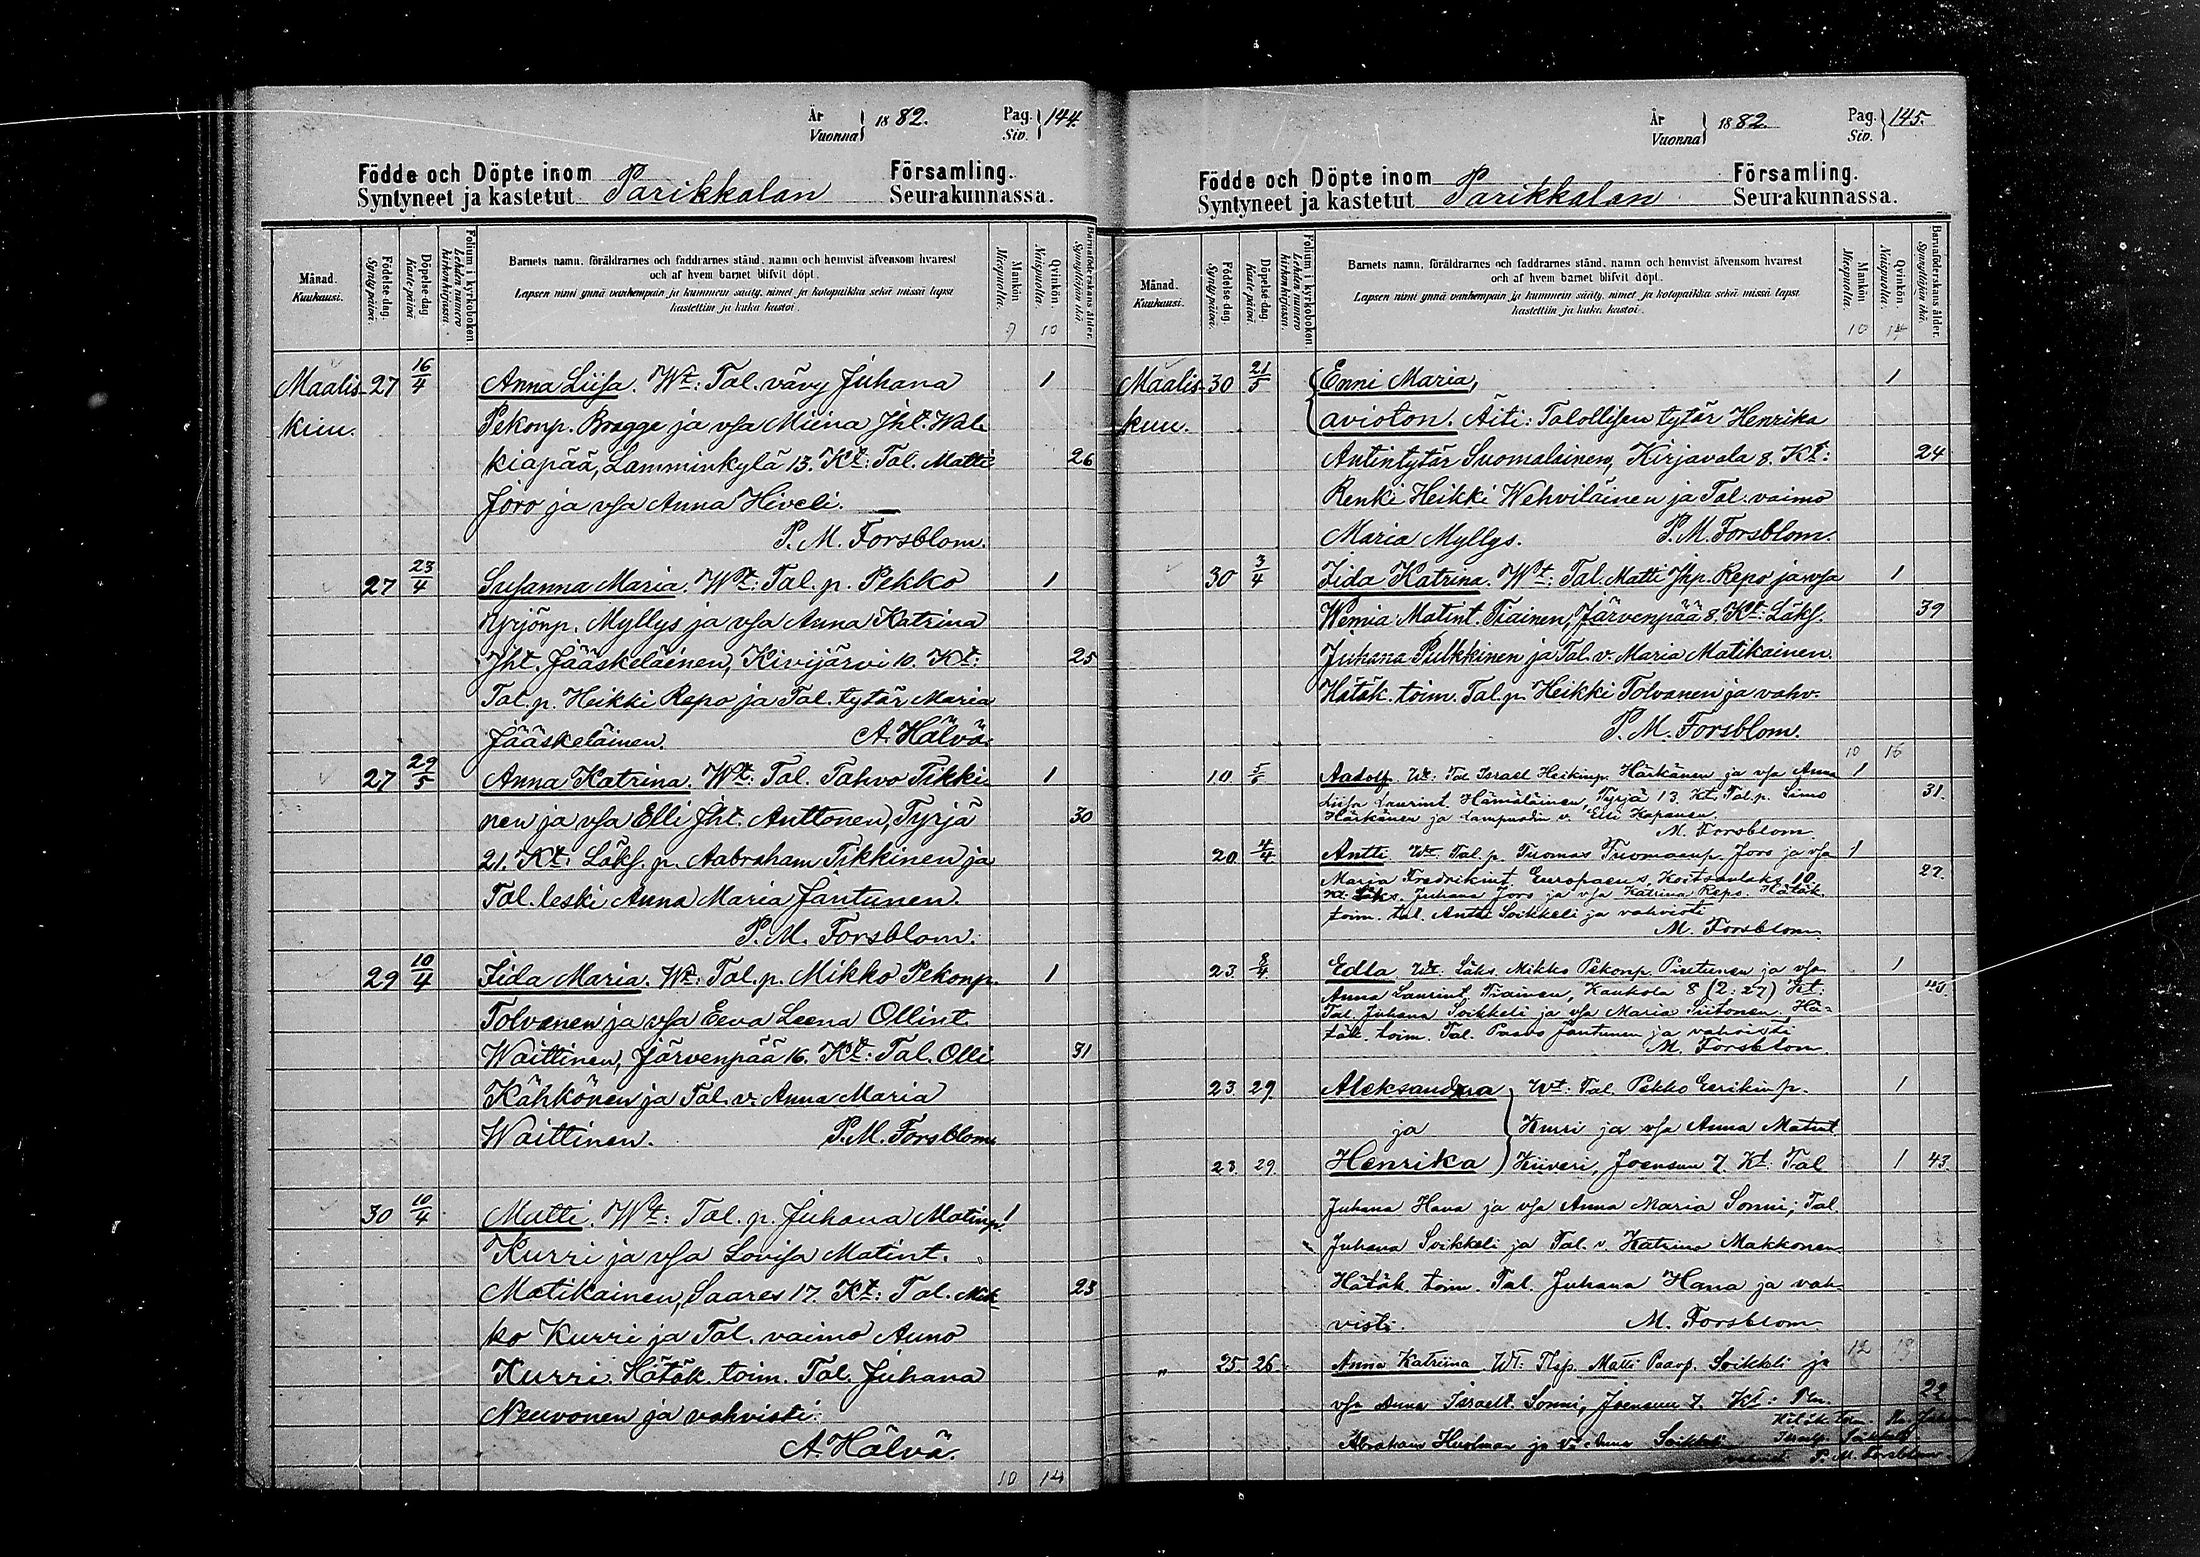 År
Vuonna } 1882. Pag. Siv. } 144.
Födde och Döpte inom Parikkalan Församling.
Syntyneet ja kastetut Seurakunnassa.
Månad. Kuukausi.
Födelse-dag. Syntypäivä.
Döpelse-dag Kaste-päivä
Folium i kyrkoboken Lehden numero kirkonkirjassa.
Barnets namn, föräldrarnes och faddrarnes stånd, namn och hemvist äfvensom hvarest
och af hvem barnet blifvit döpt.
Lapsen nimi ynnä vanhempain ja kummein sääty, nimet ja kotopaikka sekä missä lapsi
kastettiin ja kuka kastoi.
Mankön Miespuolia.
Qvinkön Naispuolia.
Barnaföderskans ålder. Synnyttäjän ikä.
7 10
Maalis- 27 16/4 Anna Liisa. Wt: Tal. vävy Juhana 1
kuu. Pekonp. Bragge ja vsa Miina Jht. Wal-
kiapää, Lamminkylä 13. Kt: Tal. Matti 26
Joro ja vsa Anna Hiveli.
P. M. Forsblom.
27 23/4 Susanna Maria. Wt: Tal. p. Pekko 1
Yrjönp. Myllys ja vsa Anna Katrina
Jht. Jääskeläinen, Kivijärvi 10. Kt: 25
Tal. p. Heikki Repo ja Tal. tytär Maria
Jääskeläinen. A. Hälvä.
27 29/5 Anna Katrina. Wt: Tal. Tahvo Tikki- 1
nen ja vsa Elli Jht. Anttonen, Tyrjä 30
21. Kt: Läks. p. Aabraham Tikkinen ja
Tal. leski Anna Maria Jantunen.
P. M. Forsblom.
29 10/4 Iida Maria. Wt: Tal. p. Mikko Pekonp. 1
Tolvanen ja vsa Eeva Leena Ollint.
Waittinen, Järvenpää 16. Kt: Tal. Olli 31
Kähkönen ja Tal. v. Anna Maria
Waittinen. P. M. Forsblom
30 10/4 Matti. Wt: Tal. p. Juhana Matinp. 1
Kurri ja vsa Lovisa Matint.
Matikainen, Saares 17. Kt: Tal. Mik- 23
ko Kurri ja Tal. vaimo Anna
Kurri. Hätäk. toim. Tal. Juhana
Neuvonen ja vahvisti
A. Hälvä.
10 14
År
Vuonna } 1882. Pag. Siv. } 145.
Födde och Döpte inom Parikkalan Församling.
Syntyneet ja kastetut Seurakunnassa.
Månad. Kuukausi.
Födelse-dag. Syntypäivä.
Döpelse-dag Kaste-päivä
Folium i kyrkoboken Lehden numero kirkonkirjassa.
Barnets namn, föräldrarnes och faddrarnes stånd, namn och hemvist äfvensom hvarest
och af hvem barnet blifvit döpt.
Lapsen nimi ynnä vanhempain ja kummein sääty, nimet ja kotopaikka sekä missä lapsi
kastettiin ja kuka kastoi.
Mankön Miespuolia.
Qvinkön Naispuolia.
Barnaföderskans ålder. Synnyttäjän ikä.
10 14
Maalis- 30 21/5 Enni Maria, 1
kuu. avioton. Äiti: Talollisen tytär Henrika
Antintytär Suomalainen, Kirjavala 8. Kt: 24
Renki Heikki Wehviläinen ja Tal. vaimo
Maria Myllys. P. M. Forsblom.
30 3/4 Iida Katrina. Wt: Tal. Matti Jhp. Repo ja vsa 1
Matint. Tiainen, Järvenpää 8. Kt: Läks. 39
Juhana Pulkkinen ja Tal. v. Maria Matikainen.
Hätäk. toim. Tal. p. Heikki Tolvanen ja vahv.
P. M. Forsblom.
10 16
10 5/6 Aadolf. Wt: Tal Israel Heikinp. Härkänen ja vsa Anna 1
Liisa Laurint. Hämäläinen, Tyrjä 13. Kt. Tal. p. Simo 31.
Härkänen ja lampuodin v. Elli Kapanen
M. Forsblom
20 4/4 Antti Wt. Tal. p. Tuomas Tuomaanp. Joro ja vsa 1
Maria Fredrikint Europaeus, Koitsanlaks 10. 27.
Kt. Läks. Juhana Joro ja vsa Katrina Repo. Hätäk.
toim. tal. Antti Soikkeli ja vahvisti
M. Forsblom.
23 8/4 Edla Wt: Läks. Mikko Pekonp. Pirttunen ja vsa 1
Anna Laurint Tiainen, Kaukola 8 (2:27) Kt: 40.
Tal. Juhana Soikkeli ja vsa Maria Siitonen. Hä-
täk. toim. Tal. Paavo Jantunen ja vahvisti
M. Forsblom.
23. 29 Aleksandra } Wt: Tal. Pekko Eerikinp. 1
ja Kurri ja vsa Anna Matint.
23 29. Henrika Kiiveri, Joensuu 7. Kt: Tal 1 43.
Juhana Hava ja vsa Anna Maria Sonni; Tal.
Juhana Soikkeli ja Tal. v. Katrina Makkonen
Hätäk. toim. Tal. Juhana Hana ja vah-
visti. M. Forsblom
12 19
" 25. 26. Anna Katriina Wt: Matti Paavop. Soikkeli ja
vsa Anna Israelt. Sonni, Joensuu 7. Kt: 22
Abraham ja v. Anna Soikkeli
P. M. Forsblom